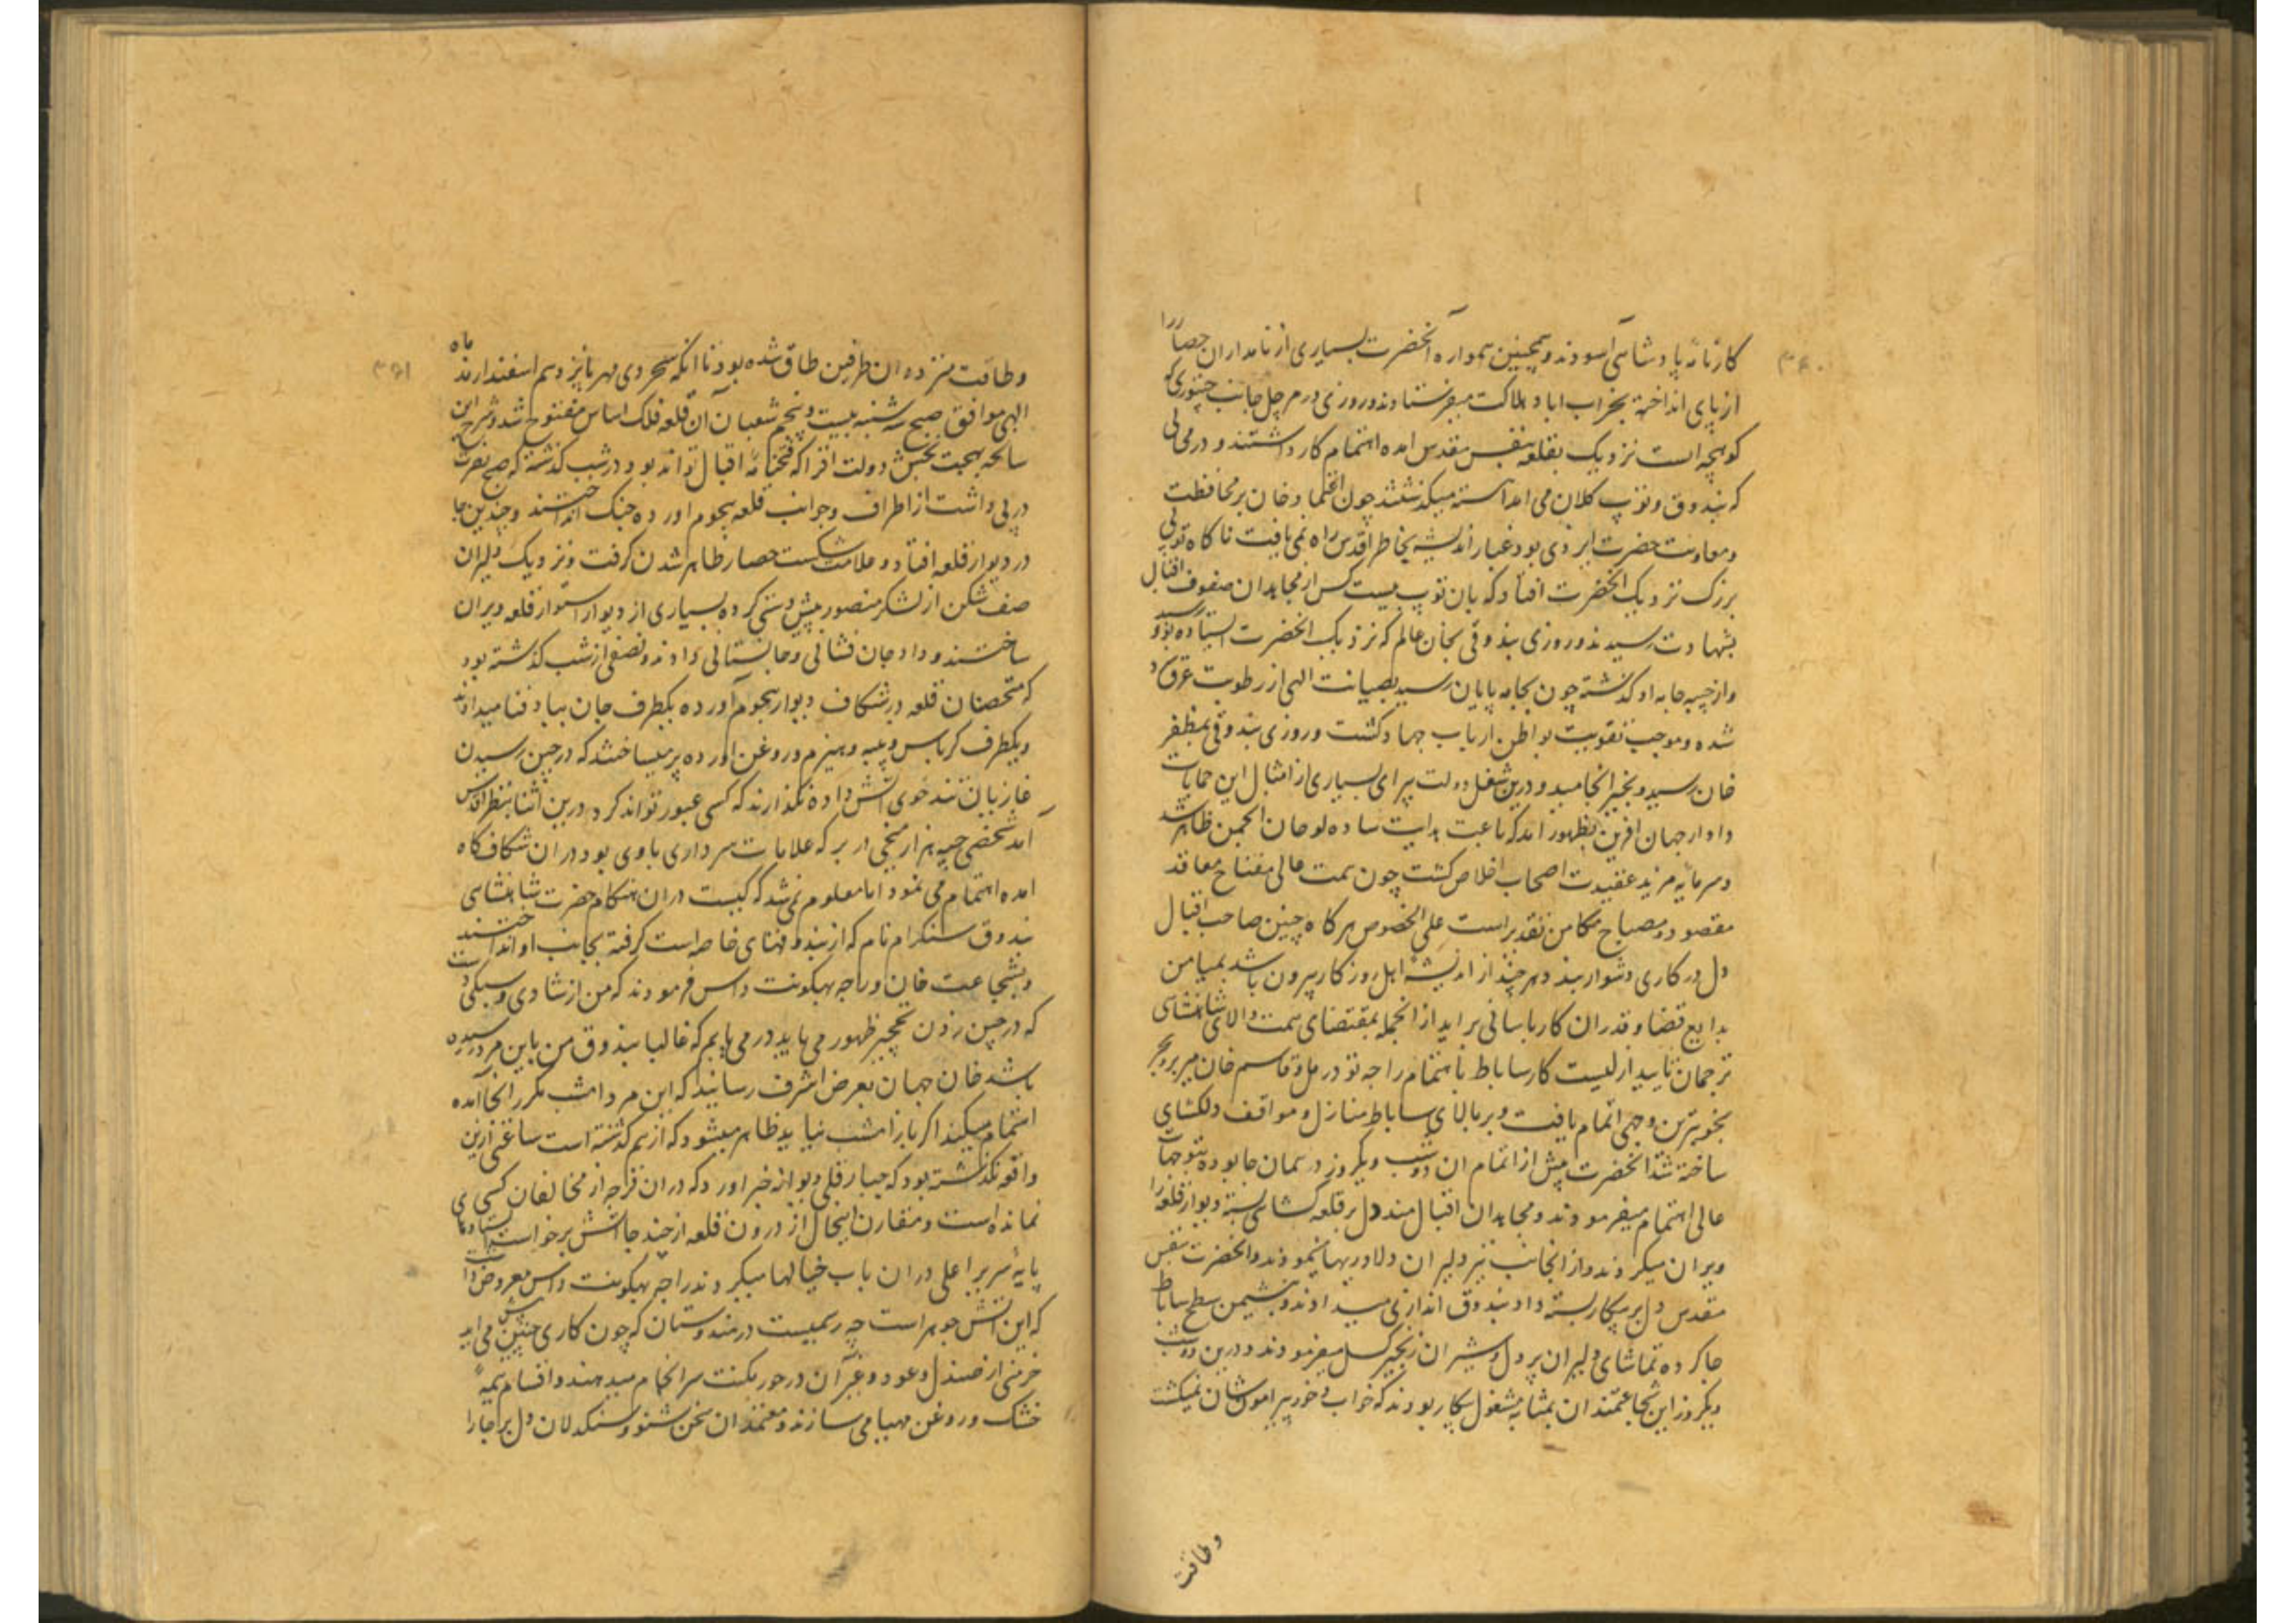 ۳۶۰
کارنامهٔ پادشاهی آسودند و همچنین همواره آنحضرت بسیاری از نامداران حصار را
از پای انداخته بخراب اباد هلاکت میفرستادند و روزی در مرچل جانب چتوری که
کوهچه است نزدیک بقلعه بنفس مقدس امده اهتمام کار داشتند و در محالی
که بندوق و توپ کلان می امد اهسته میکذشتند چون اعتماد خان بر محافظت
و معاونت حضرت ایزدی بود غبار اندیشه بخاطر اقدس راه نمی یافت ناکاه توپی
بزرک نزدیک آنحضرت افتاد که بان توپ بیست کس از مجاهدان صفوف اقبال
بشهادت رسیدند و روزی بندوقی بخان عالم که نزدیک انحضرت ایستاده بود رسید
و از جیبه جامه او کذشته چون بجامه پایان رسید بصیانت الهی از رطوبت عرق سرد
شده و موجب تقویت بواطن ارباب جهاد کشت و روزی بندوقی بمظفر
خان رسید و بخیر انجامید و درین شغل دولت پیرای بسیاری از امثال این حمایات
دادار جهان افرین بظهور امد که باعث هدایت ساده لوحان انجمن ظاهر شد
و سرمایه مزید عقیدت اصحاب اخلاص کشت چون همت عالی مفتاح معاقد
مقصود و مصباح مکامن تقدیر است علی الخصوص هرکاه چنین صاحب اقبال
دل در کاری دشوار بندد هر چند از اندیشهٔ اهل روزکار بیرون باشد بمیامن
بدایع قضا و قدر ان کار باسانی براید از انجمله بمقتضای همت والای شاهنشاهی
ترجمان تایید ازلیست کار ساباط باهتمام راجه تودرمل و قاسم خان میر بر و بحر
بخوبترین وجهی اتمام یافت و بر بالای ساباط منازل و مواقف دلکشای
ساخته شد انحضرت پیش از اتمام ان دو شب و یکروز در همان جا بوده بتوجهات
عالی اهتمام میفرمودند و مجاهدان اقبال مند دل بر قلعه کشائی بسته دیوار قلعه را
ویران میکردند و از انجانب نیز دلیران دلاوریها مینمودند و انحضرت بنفس
مقدس دل بر پیکار بسته داد بندوق اندازی میدادند و بر نشیمن سطح ساباط
جا کرده تماشای دلیران پر دل و شیران زنجیر کسل میفرمودند و درین دو شب
و یکروز این شجاعتمندان بمثابه مشغول پیکار بودند که خواب و خور پیرامون شان نمیکشت
وطاقت
۳۶۱
وطاقت متنزده ان طرفین طاق شده بود تا انکه سحر دی مهر تا پنز دهم اسفندارمذ ماه
الهی موافق صبح سه شنبه بیست و پنجم شعبان آن قلعه فلک اساس مفتوح شد و شرح این
سانحه بهجت بخش دولت افزا که فتحنامهٔ اقبال تواند بود در شب کذشته که صبح نصرت
در پی داشت از اطراف و جوانب قلعه هجوم اورده جنک انداختند و چندین جا
در دیوار قلعه افتاد و علامت شکست حصار ظاهر شدن کرفت و نزدیک دلیران
صف شکن از لشکر منصور پیش دستی کرده بسیاری از دیوار استوار قلعه ویران
ساختند و داد جان فشانی و جانستانی دادند و نصفی از شب کذشته بود
که متحصنان قلعه در شکاف دیوار هجوم آورده یکطرف جان بباد فنا میدادند
و یکطرف کرباس و پنبه و هیزم و روغن اورده پر میساختند که در حین رسیدن
غازیان تند خوی آتش داده نکذارند که کسی عبور تواند کرد درین اثنا بنظر اقدس
آمد شخصی جیبه هزار میخی در بر که علامات سرداری با وی بود در ان شکاف کاه
امده اهتمام می نمود اما معلوم نمی شد که کیست در ان هنکام حضرت شاهنشاهی
بندوق سنکرام نام که از بندوقهای خاصه است کرفته بجانب او انداختند
و بشجاعت خان و راجه بهکونت داس فرمودند که من از شادی و سبکی دست
که در حین زدن نخچیر ظهور می یابد در می یابم که غالبا بندوق من باین مرد رسیده
باشد خان جهان بعرض اشرف رسانید که این مرد امشب مکرر انجا آمده
اهتمام میکند اکر باز امشب نیاید ظاهر میشود که از هم کذشته است ساعتی ازین
واقعه نکذشته بود که جبار قلی دیوانه خبر اورد که در ان فرجه از مخالفان کسی
نمانده است و مقارن اینحال از درون قلعه از چند جا آتش برخواست ایستادهای
پایهٔ سریر اعلی در ان باب خیالها میکردند راجه بهکونت داس معروض داشت
که این آتش جوهر است چه رسمیست در هندوستان که چون کاری چنین پیش می اید
خرمنی از صندل و عود و غیر آن در خور مکنت سرانجام میدهند و اقسام هیمهٔ
خشک و روغن مهیا می سازند و معتمدان سخن شنو و سنکدلان دل بر جا را